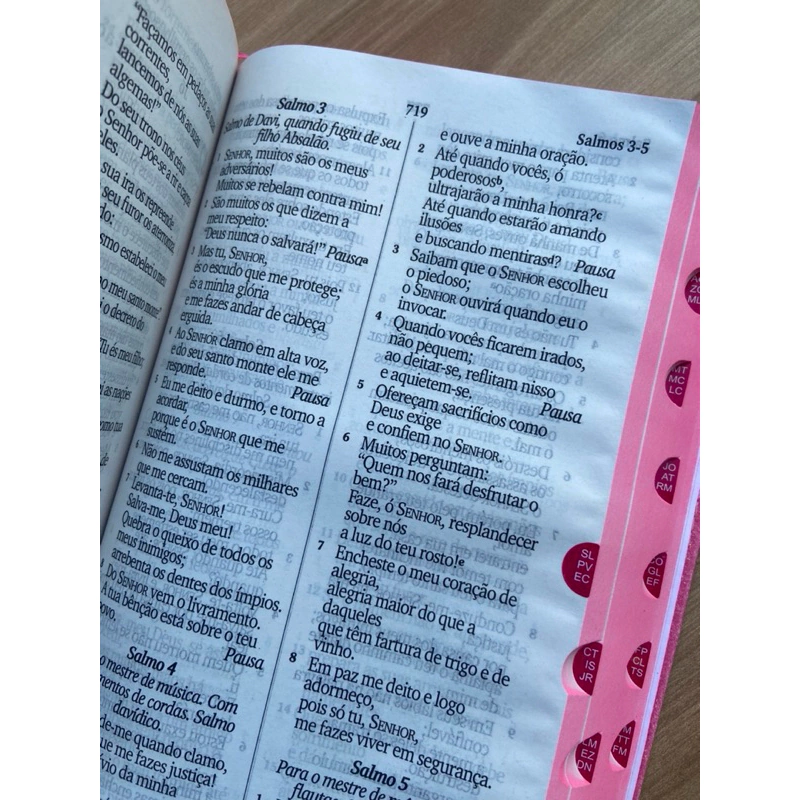 "Façamos em pedaços as suas
correntes,
lancemos de nós as suas
algemas!"
Do seu trono nos céus
o Senhor põe-se a rir e caçoa
deles.
sua ira os repreende
seu furor os aterroriza,
do:
smo estabeleci o meu
no meu santo monte".
i o decreto do
"Tu és meu filho;
as nações
719
Salmos 3-5
Salmo 3
Salmo de Davi, quando fugiu de seu
filho Absalão.
1 SENHOR, muitos são os meus
adversários!
Muitos se rebelam contra mim!
2 São muitos os que dizem a
meu respeito:
"Deus nunca o salvará!" Pausaª
3 Mas tu, SENHOR,
és o escudo que me protege;
és a minha glória
e me fazes andar de cabeça
erguida.
4 Ao SENHOR clamo em alta voz,
e do seu santo monte ele me
responde. Pausa
5 Eu me deito e durmo, e torno a
acordar,
porque é o SENHOR que me
sustém.
6 Não me assustam os milhares
que me cercam.
7 Levanta-te, SENHOR!
Salva-me, Deus meu!
Quebra o queixo de todos os
meus inimigos;
arrebenta os dentes dos ímpios.
8 Do SENHOR vem o livramento.
A tua bênção está sobre o teu
povo. Pausa
Salmo 4
o mestre de música. Com
mentos de cordas. Salmo
davídico.
de-me quando clamo,
que me fazes justiça!
vio da minha
e ouve a minha oração.
2 Até quando vocês, ó
poderososᵇ,
ultrajarão a minha honra?ᶜ
Até quando estarão amando
ilusões
e buscando mentirasᵈ? Pausa
3 Saibam que o SENHOR escolheu
o piedoso;
o SENHOR ouvirá quando eu o
invocar.
4 Quando vocês ficarem irados,
não pequem;
ao deitar-se, reflitam nisso
e aquietem-se. Pausa
5 Ofereçam sacrifícios como
Deus exige
e confiem no SENHOR.
6 Muitos perguntam:
"Quem nos fará desfrutar o
bem?"
Faze, ó SENHOR, resplandecer
sobre nós
a luz do teu rosto!ᵉ
7 Encheste o meu coração de
alegria,
alegria maior do que a
daqueles
que têm fartura de trigo e de
vinho.
8 Em paz me deito e logo
adormeço,
pois só tu, SENHOR,
me fazes viver em segurança.
Salmo 5
Para o mestre de mús
flautas
ZC
ML
MT
MC
LC
JO
AT
RM
SL
PV
EC
CO
GL
EF
CT
IS
JR
FP
CL
TS
LM
EZ
DN
TT
FM